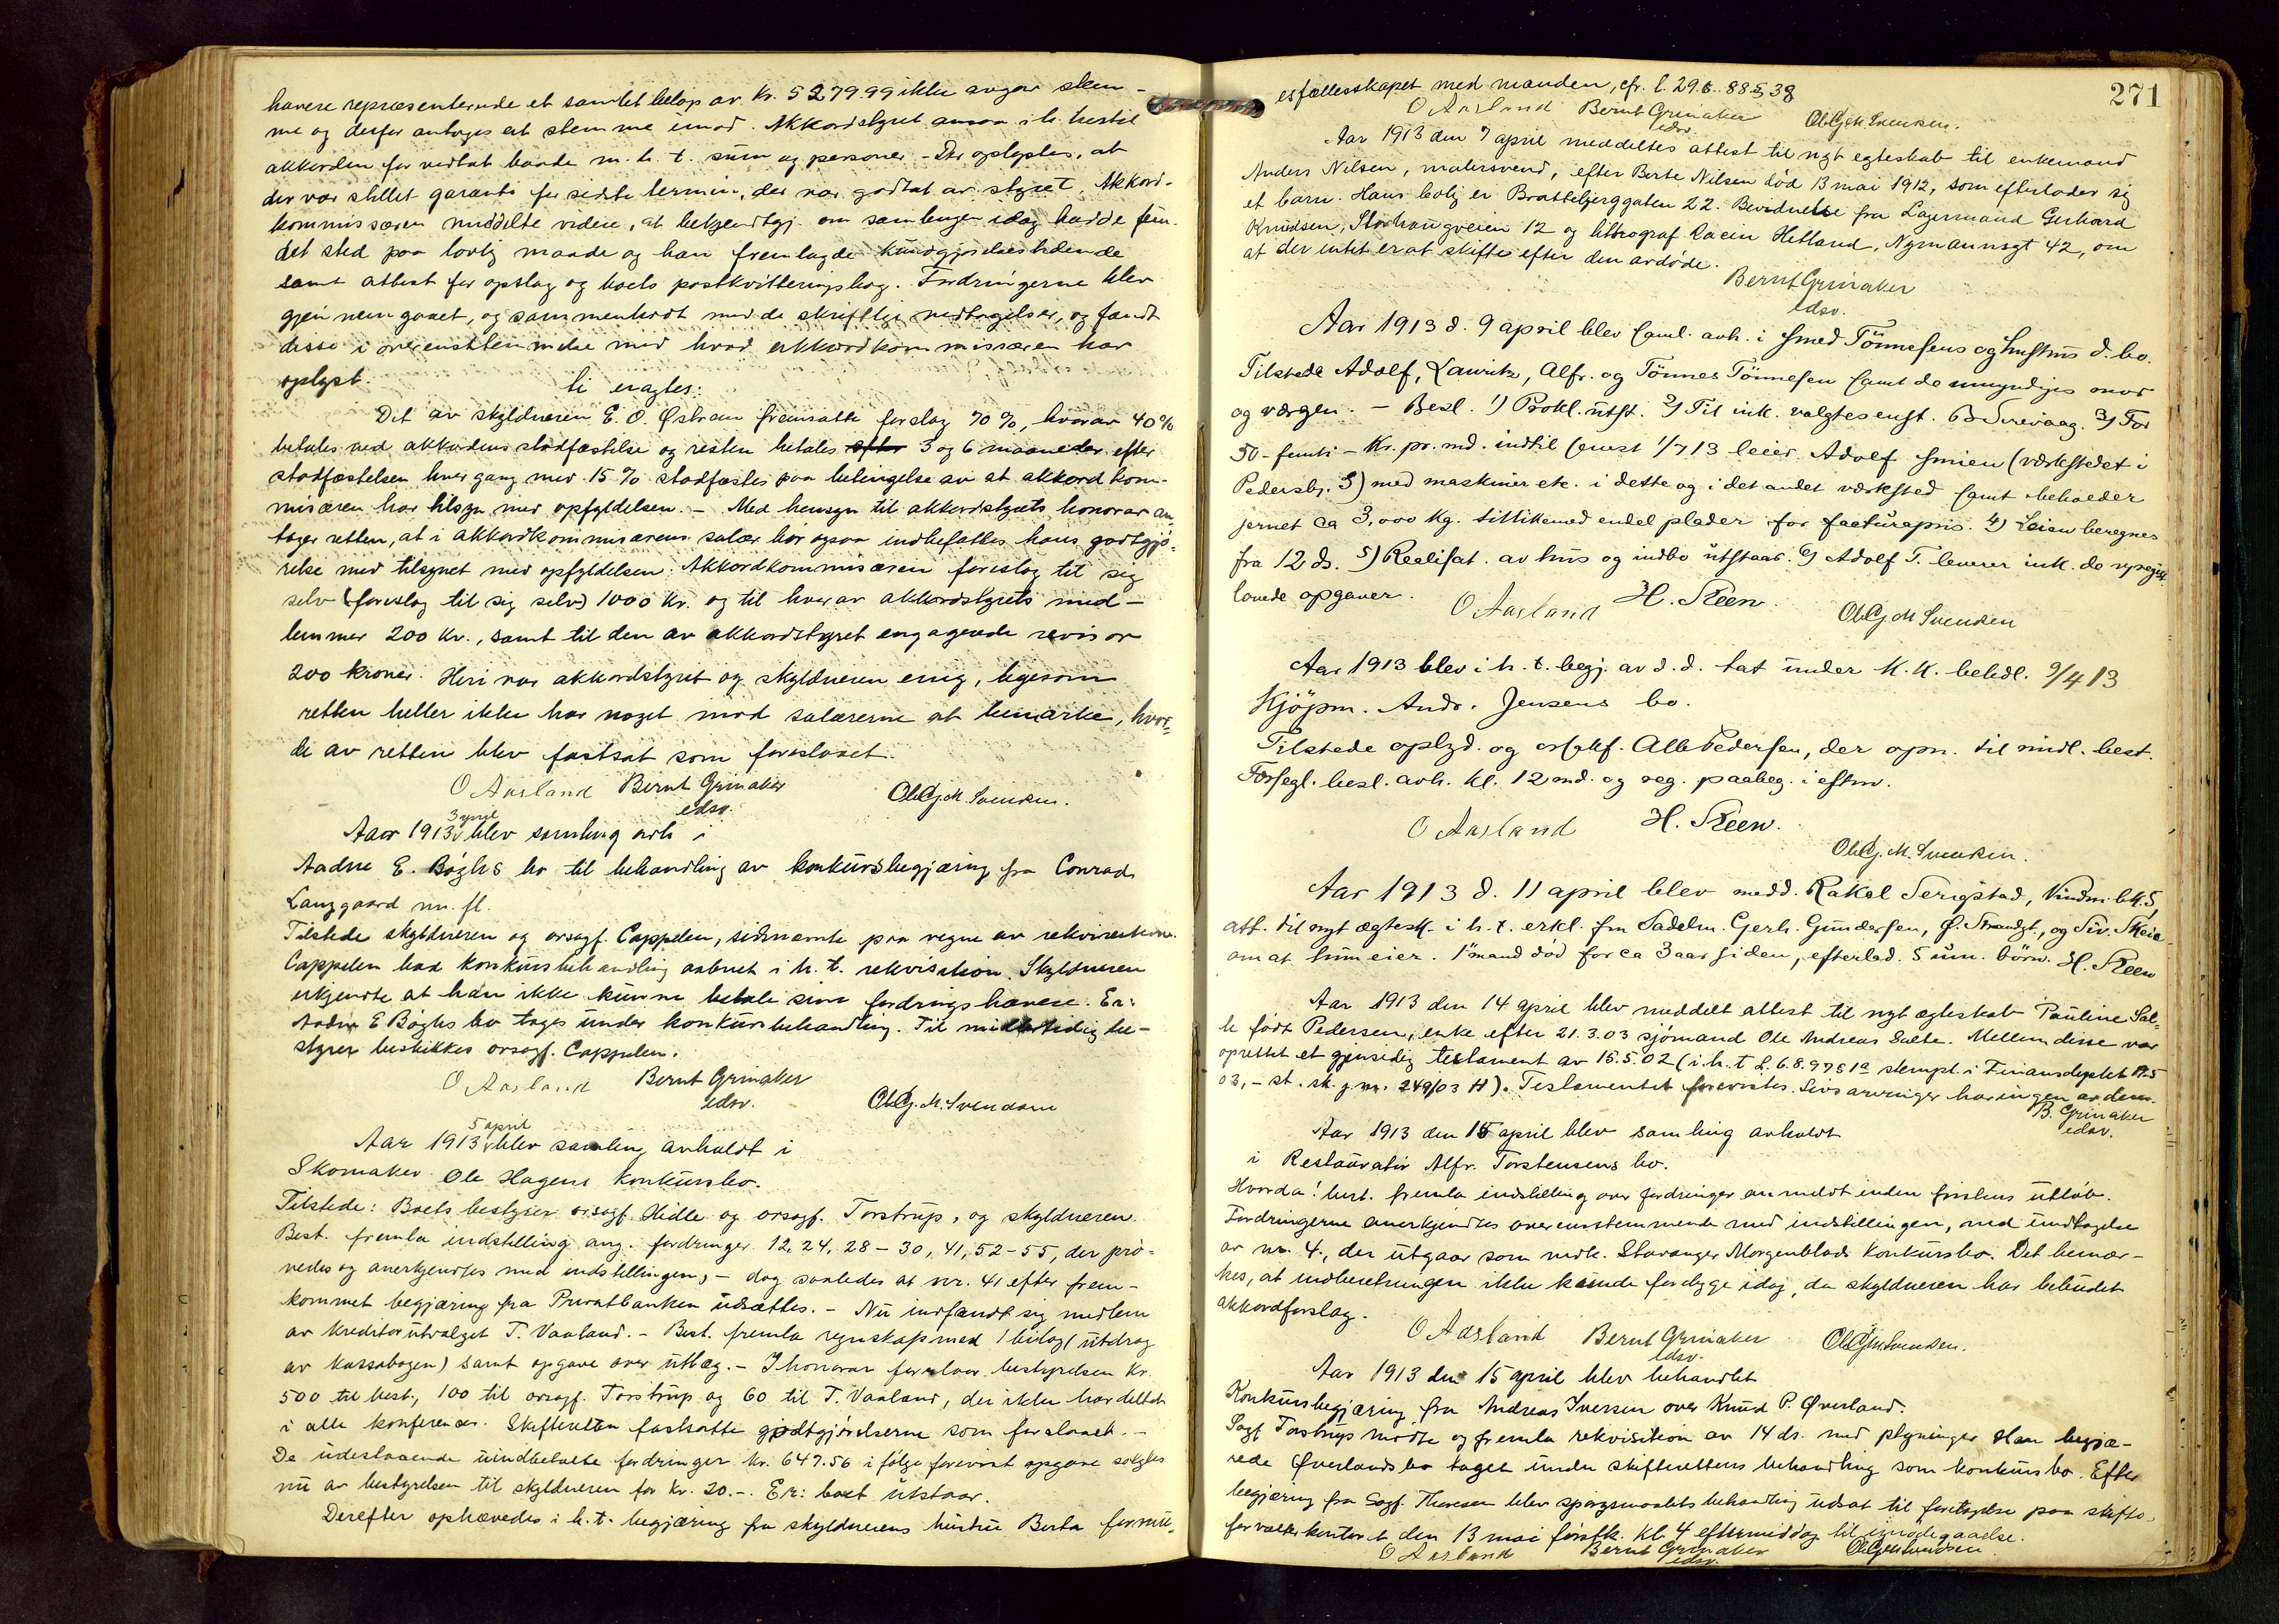 havere repræsenterende et samlet beløp av Kr. 5279.99 ikke avgav stem-
me og derfor antages at stemme imod. Akkordstyret ansaa i h. hertil
akkorden for vedtat baade m. h. t. sum og personer. - Der oplystes, at
der var stillet garanti for sidste termin, der var godtat av styret. Akkord-
kommissæren meddelte videre, at bekjendtgj. om samlingen idag hadde fun-
det sted paa lovlig maade og han fremlagde kundgjørelsestidende
samt attest for opslag og boets postkvitteringsbog. Fordringerne blev
gjennemgaaet, og sammenholdt med de skriftlige vedtagelser, og fandt
disse i overensstemmelse med hvad akkordkommissæren har
oplyst.
ti eragtes:
Det av skyldneren E. O. Østram fremsatte forslag 70 %, hvorav 40 %
betales ved akkordens stadfæstelse og resten betales efter 3 og 6 maaneder efter
stadfæstelsen hver gang med 15 % stadfæstes paa betingelse av at akkordkom-
misæren har tilsyn med opfyldelsen. - Med hensyn til akkordstyrets honorar an-
tager retten, at i akkordkommisærens salær bør ogsaa indbefattes hans godtgjø-
relse med tilsynet med opfyldelsen. Akkordkommisæren foreslog til sig
selv (foreslog til sig selv) 1000 Kr. og til hver av akkordstyrets med-
lemmer 200 Kr., samt til den av akkordstyret engagerede revisor
200 kroner. Heri var akkordstyret og skyldneren enig, ligesom
retten heller ikke har noget mod salærerne at bemærke, hvor-
de av retten blev fastsat som foreslaaet.
O Aasland Bernt Grinaker Ole Gj. M. Svendsen.
edsv.
3 april
Aar 1913 blev samling avh i
Aadne E. Bøghs bo til behandling av konkursbegjæring fra Conrad
Langgaard m. fl.
Tilstede skyldneren og orsagf. Cappelen, sidstnævnte paa vegne av rekvirenterne.
Cappelen bad konkursbehandling aabnet i h. t. rekvisition. Skyldneren
erkjendte at han ikke kunne betale sine fordringshavere. Er:
Aadne E Bøghs bo tages under konkursbehandling. Til midlertidig be-
styrer beskikkes orsagf. Cappelen.
O Aasland Bernt Grinaker Ole Gj. M. Svendsen
edsv.
5 april
Aar 1913 blev samling avholdt i
Skomaker Ole Hagens Konkursbo.
Tilstede: Boets bestyrer orsagf. Hidle og orsagf. Torstrup, og skyldneren.
Best. fremla indstilling ang. fordringer 12, 24, 28 - 30, 41, 52 - 55, der prø-
vedes og anerkjendtes med indstillingen, - dog saaledes at nr. 41 efter frem-
kommet begjæring fra Privatbanken udsættes. - Nu indfandt sig medlem
av kreditorutvalget T. Vaaland. - Best. fremla regnskap med 1 bilag (utdrag
av kassabogen) samt opgave over utlæg. - I honorar foreslaar bestyrelsen Kr.
500 til best., 100 til orsagf. Torstrup og 60 til T. Vaaland, der ikke har deltat
i alle konferencer. Skifteretten fastsatte godtgjørelserne som foreslaaet. -
De udestaaende uindbetalte fordringer Kr. 647.56 i følge forevist opgave solgtes
nu av bestyrelsen til skyldneren for Kr. 20.-. Er: boet utstaar.
Derefter ophævedes i h. t. begjæring fra skyldnerens hustru Berta formu-
271
esfællesskapet med manden, cfr. l. 29.6.88 § 38
O Aasland Bernt Grinaker Ole Gj. M. Svendsen.
edsv.
Aar 1913 den 7 april meddeltes attest til nyt egteskab til enkemand
Anders Nilsen, malersvend, efter Berte Nilsen død 13 mai 1912, som efterlader sig
et barn. Hans bolig er Bratteb­jerggaten 22. Bevidnelse fra Lagermand Gerhard
Knudsen, Storhaugveien 12 og lithograf Racin Hetland, Nymannsgt 42, om
at der intet er at skifte efter den avdøde.
Bernt Grinaker
edsv.
Aar 1913 d. 9 april blev saml. avh. i smed Tönnesens og hustrus d. bo.
Tilstede Adolf, Lauritz, Alfr. og Tönnes Tönnesen samt de umyndiges mor
og værgen. - Besl. 1) Prokl. utst. 2) Til ink. valgtes enst. B Svevaag. 3) For
50 - femti - Kr. pr. md. indtil senest 1/7 13 leier Adolf smien (værkstedet i
Pedersbg. 3) med maskiner etc. i dette og i det andet værksted samt beholder
jernet ca 3,000 Kg. tillikemed endel plader for facturapris. 4) Leien beregnes
fra 12 ds. 5) Realisat. av hus og indbo utstaar. 6) Adolf T. leverer ink. de
lovede opgaver.
O Aasland H. Steen. Ole Gj M Svendsen
Aar 1913 blev i h. t. begj. av d. d. tat under K. K. behdl. 9/4 13
Kjöpm. Andr. Jensens bo.
Tilstede oplgd. og orsakf. Alb Pedersen, der opn. til midl. best.
Forsegl. besl. avh. kl. 12 md. og reg. paabeg. i eftm.
O Aasland H. Steen.
Ole Gj. M. Svendsen.
Aar 1913 d. 11 april blev medd. Rakel Serigstad, Vindm. bk. 5,
att. til nyt ægtesk. i h. t. erkl. fra Sadelm. Gerh. Gundersen, Ø. Strandgt., og Siv. Skeie
om at hun eier. 1' mand död for ca 3 aar siden, efterlad. 5 um. börn. H. Steen
Aar 1913 den 14 april blev meddelt attest til nyt ægteskab Pauline Sal-
te født Pedersen, enke efter 21.3.03 sjömand Ole Andreas Salte. Mellem disse var
oprettet et gjensidig testament av 15.5.02 (i h. t L. 6.8.97 § 1a stempl. i Finansdeptet 19.5
03, - st. sk. j. nr. 249/03 H). Testamentet forevistes. Livsarvinger har ingen av dem.
B. Grinaker
edsv.
Aar 1913 den 15 april blev samling avholdt
i Restauratør Alfr. Torstensens bo.
Hvorda: best. fremla indstilling over fordringer anmeldt inden fristens utløb.
Fordringerne anerkjendtes overensstemmende med indstillingen, med undtagelse
av nr. 4, der utgaar som vedk. Stavanger Morgenblads Konkursbo. Det bemær-
kes, at indberetningen ikke kunde forelygge idag, da skyldneren har bebudet
akkordforslag.
O Aasland Bernt Grinaker Ole Gj M Svendsen.
edsv.
Aar 1913 den 15 april blev behandlet
Konkursbegjæring fra Andreas Iversen over Knud P. Øverland.
Sagf Torstrup mødte og fremla rekvisition av 14 ds. med plygninger. Han begjæ-
rede Øverlands bo taget under skifterettens behandling som konkursbo. Efter
begjæring fra Sagf. Thoresen blev spørgsmaalets behandling udsat til foretagelse paa skifte-
forvalterkontoret den 13 mai førstk. Kl. 4 eftermiddag til imødegaaelse.
O Aasland Bernt Grinaker Ole Gj M Svendsen
edsv.